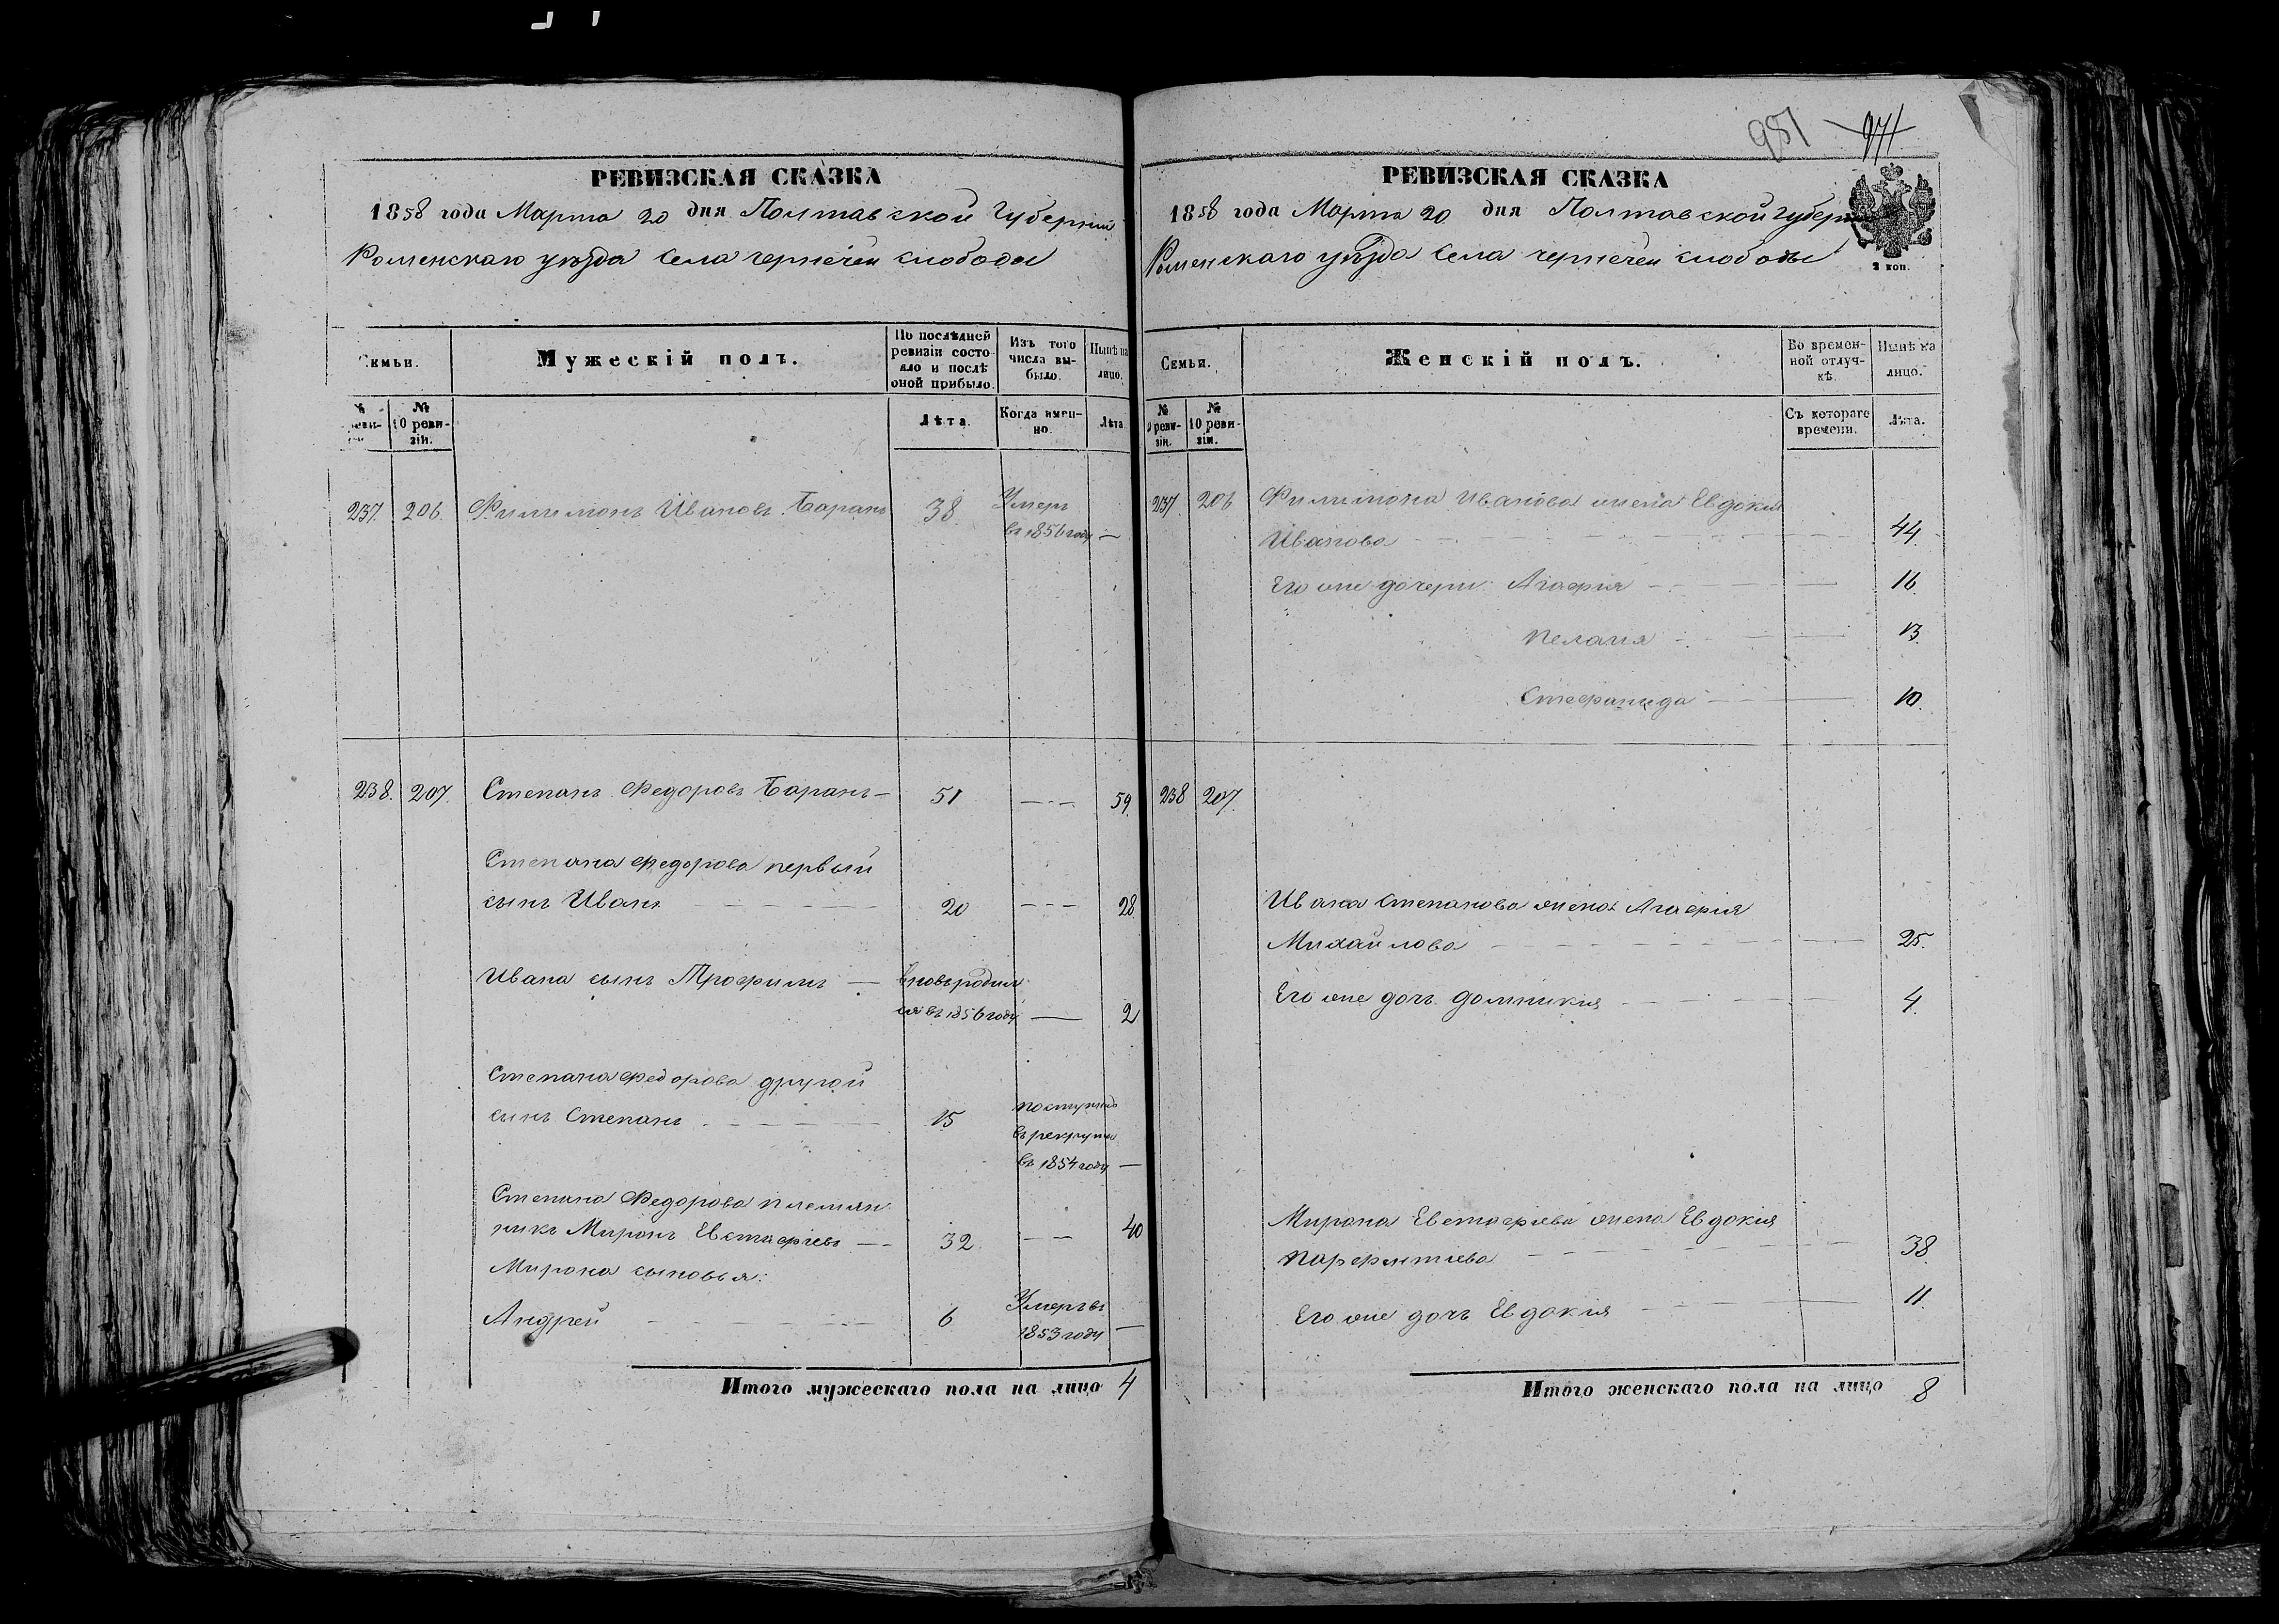 981 971
РЕВИЗСКАЯ СКАЗКА
1858 года Марта 20 дня Полтавской Губерніи
Роменскаго уѣзда Села Чернечей слободы
Семьи.
Мужескій полъ.
По послѣдней ревизіи состояло и послѣ оной прибыло.
Изъ того числа выбыло.
Нынѣ на лицо.
№ ревизіи.
№ 10 ревизіи.
Лѣта.
Когда именно.
Лѣта
237. 206. Филимонъ Ивановъ Баранъ 38. Умеръ
въ 1856 году —
238. 207. Степанъ Федоровъ Баранъ — 51 — 59.
Степана Федорова первый
сынъ Иванъ 20 — 28.
Ивана сынъ Трофимъ — вновь родил
ся въ 1856 году — 2
Степана Федорова другой
сынъ Степанъ 15 поступилъ
въ рекруты
въ 1854 году —
Степана Федорова племян
никъ Миронъ Евстафіевъ — 32. — 40
Мирона сыновья:
Андрей 6 Умеръ въ
1853 году —
Итого мужескаго пола на лицо 4
РЕВИЗСКАЯ СКАЗКА
1858 года Марта 20 дня Полтавской Губерніи
Роменскаго уѣзда Села Чернечей слободы
2 коп.
Семьи.
Женскій полъ.
Во временной отлучкѣ.
Нынѣ на лицо.
№ 9 ревизіи.
№ 10 ревизіи.
Съ котораго времени.
Лѣта.
237. 206 Филимона Иванова жена Евдокия
Иванова 44.
Его же дочери: Агафия 16.
Пелагия 13.
Стефанида 10.
238 207.
Ивана Степанова жена Агафия
Михайлова 25.
Его же дочь Домникия 4.
Мирона Евстафиева жена Евдокия
Парфентиева 38.
Его же дочь Евдокия 11.
Итого женскаго пола на лицо 8